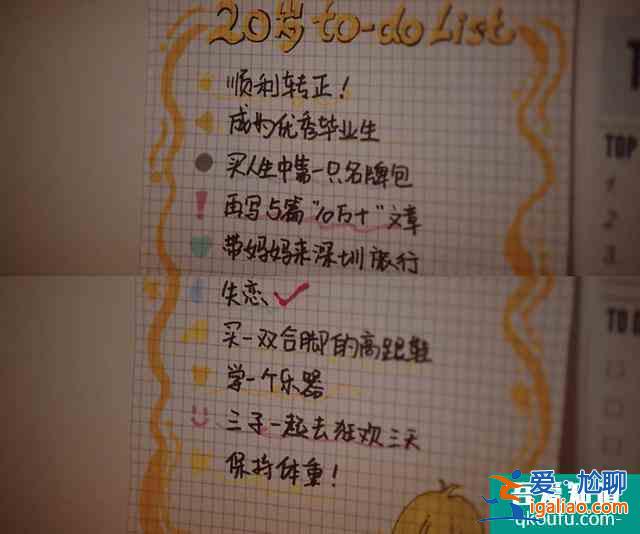 20岁to-do List
顺利转正！
成为优秀毕业生
买人生中第一只名牌包
再写5篇"10万+"文章
带妈妈来深圳旅行
失恋 ✓
买一双合脚的高跟鞋
学一个乐器
三子一起去狂欢三天
保持体重！
TOP
1
2
3
TO D
爱尬聊
igaliao.com